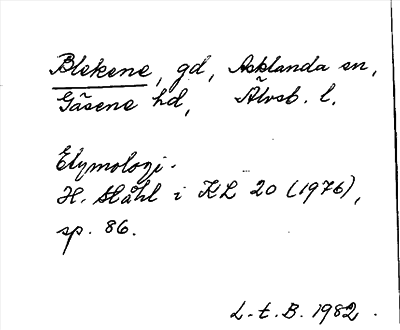 Blekene, gd, Asklanda sn,
Gäsene hd, Älvsb. l.
Etymologi.
H. Ståhl i KL 20 (1976),
sp. 86.
L.t.B. 1982.